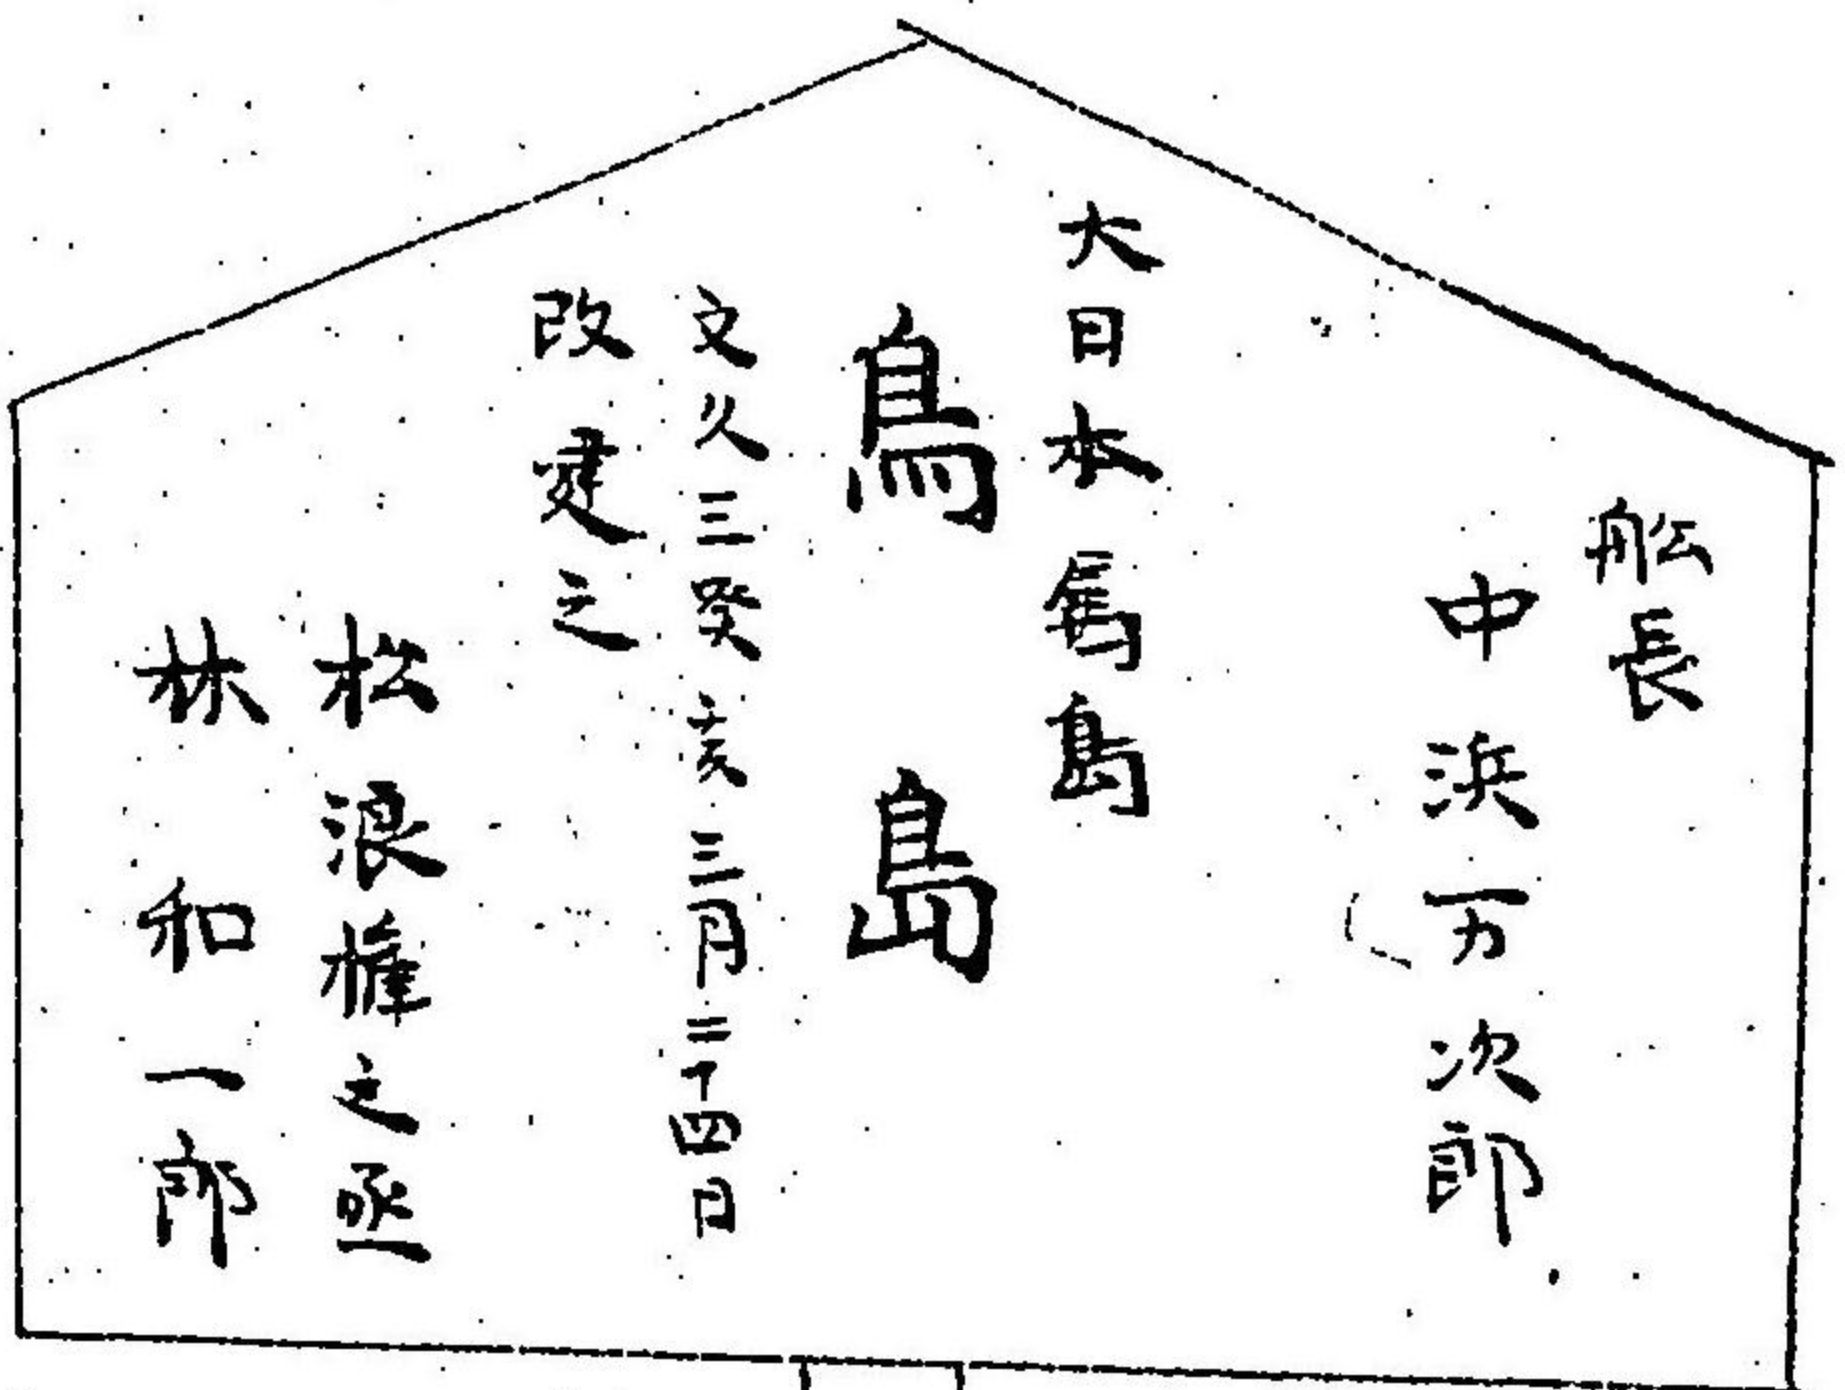 舩長
中浜万次郎
大日本属島
鳥島
文久三癸亥三月二十四日
改建之
松浪権之丞
林和一郎